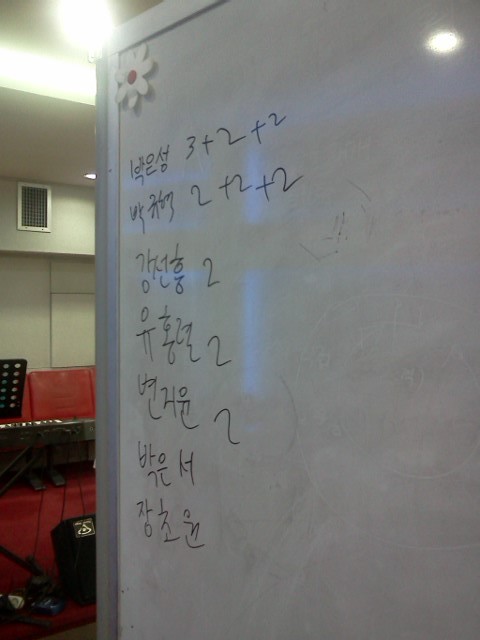 박은성 3+2+2
박규혁 2+2+2
강선흥 2
유홍렬 2
변지윤 2
박은서
장초원